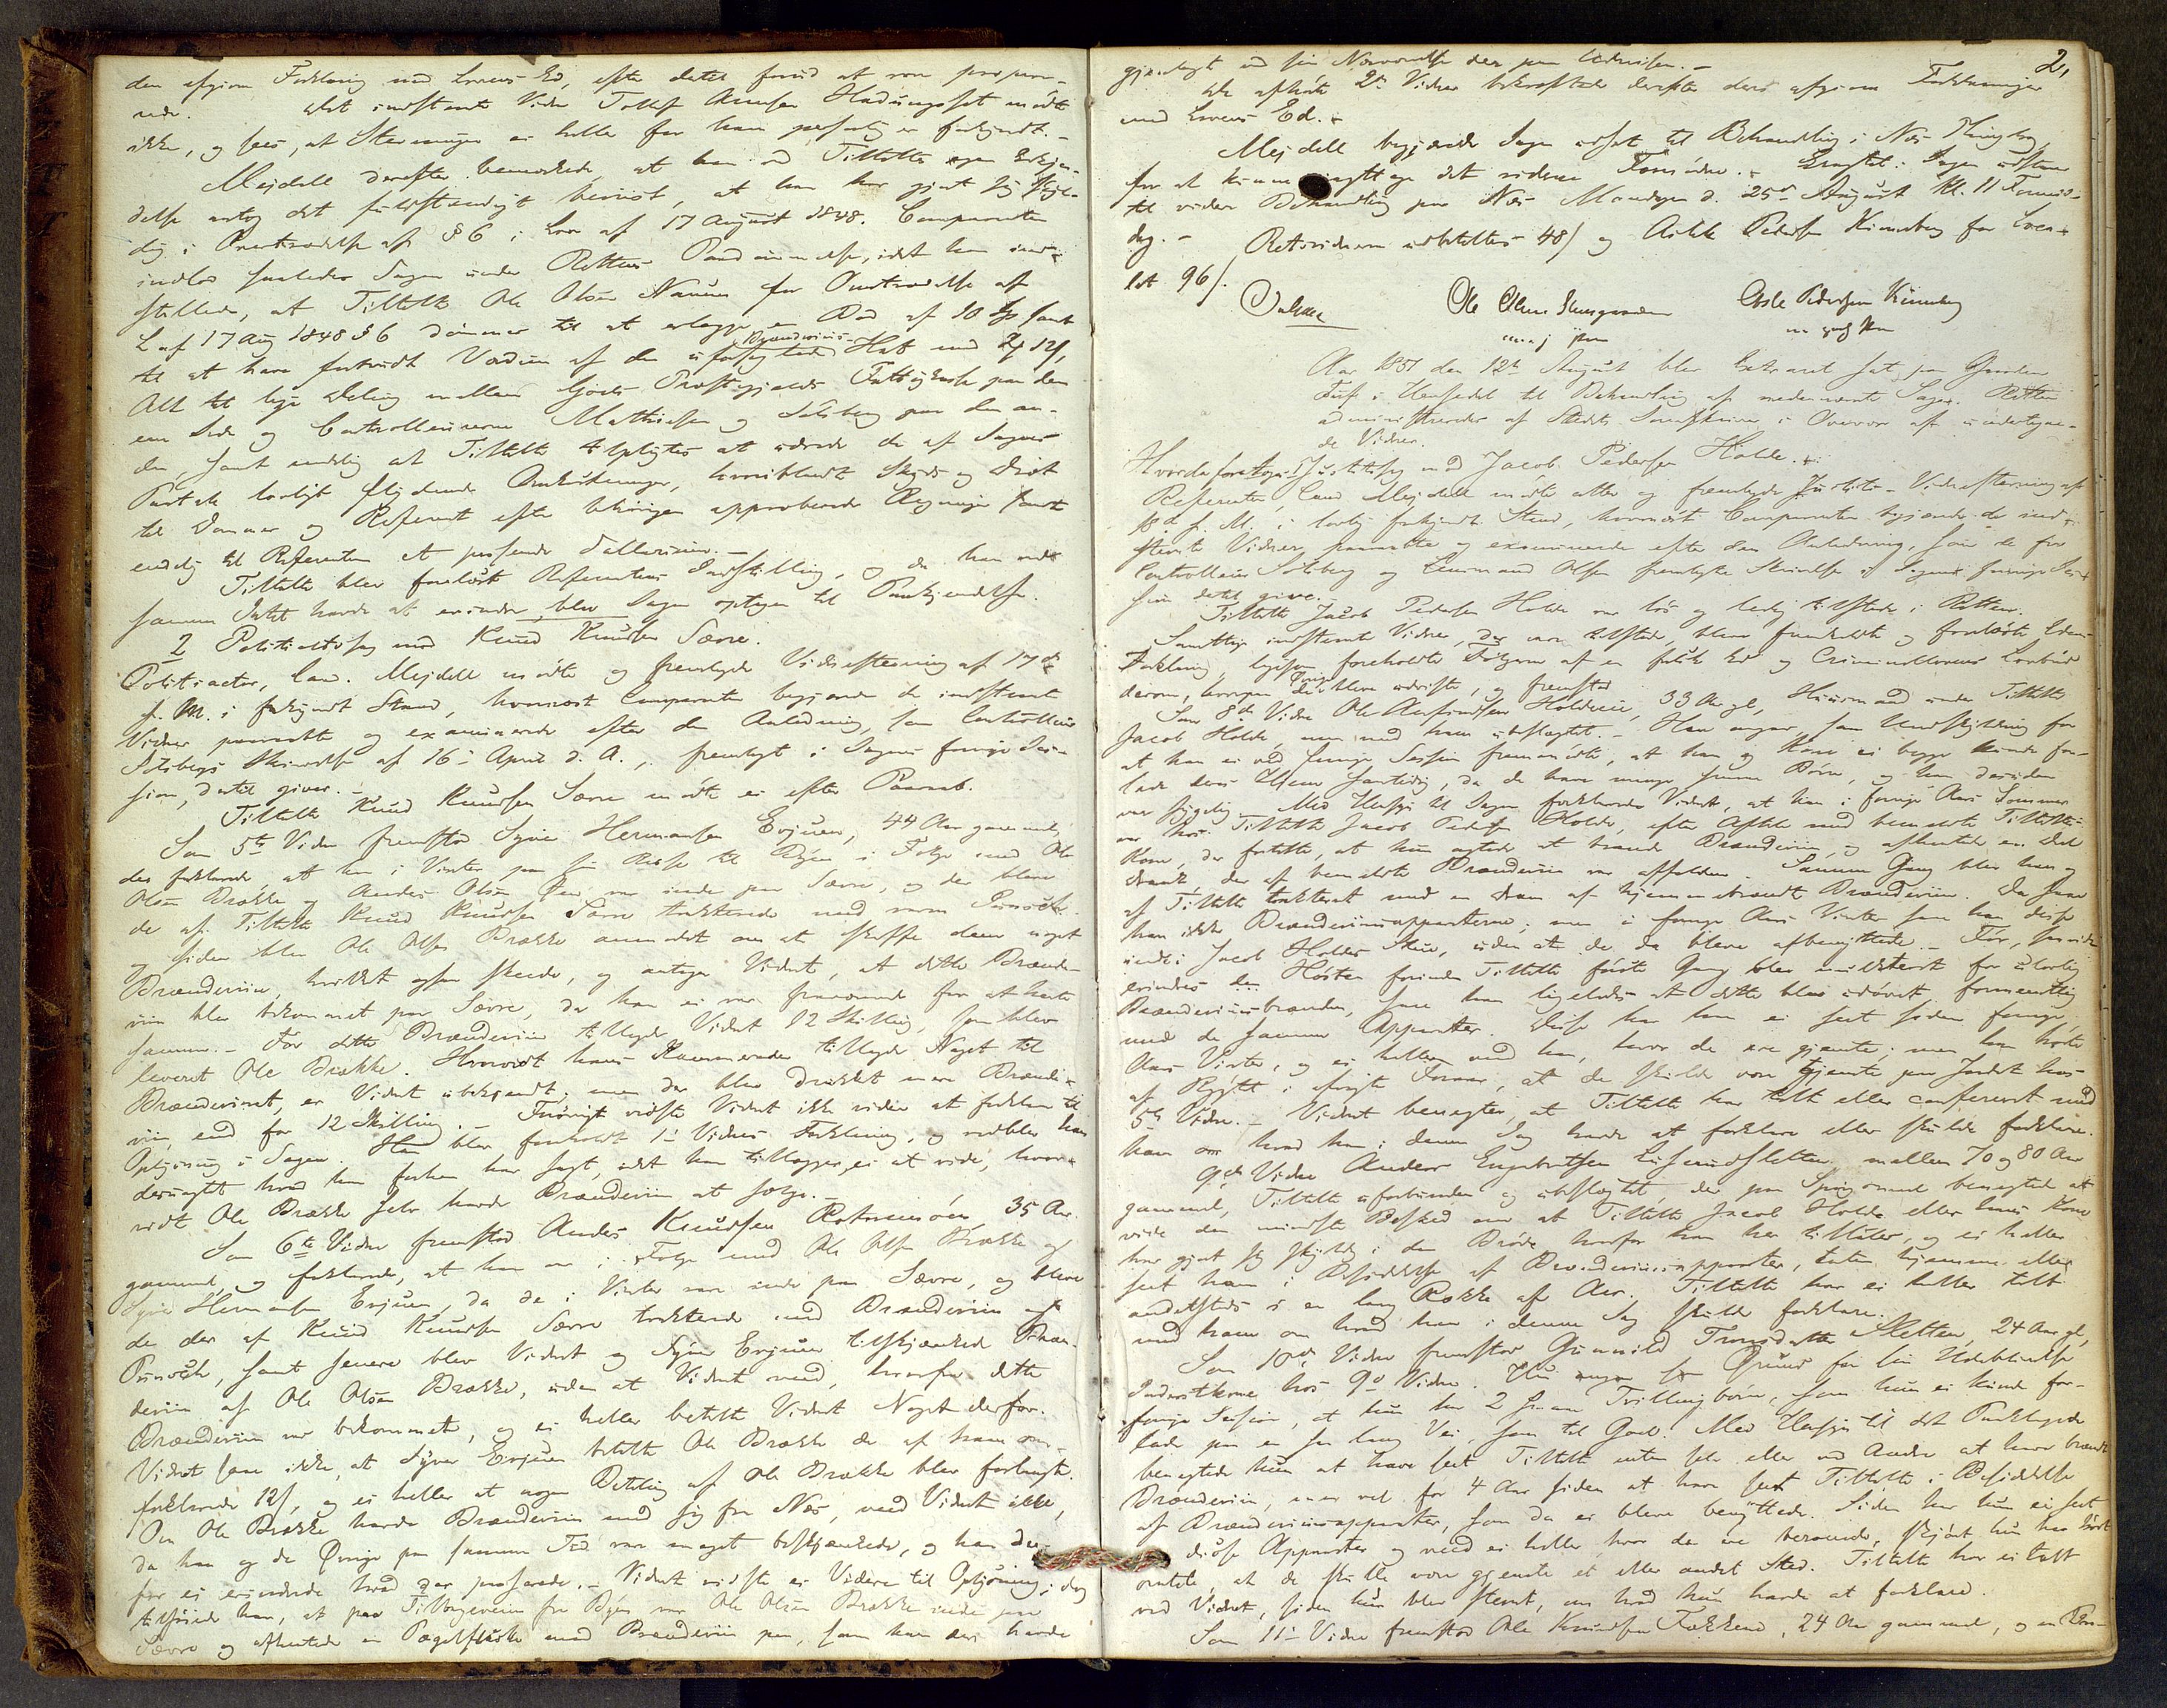 den afgivne Forklaring med Lovens Ed, efter dertil forud at være præpare-
rede. Det indstevnte Vidne Tollef Arnesen Hadüngsset mödte
ikke, og sees, at Stevningen ei heller for ham personlig er forkyndt.-
Mejdell derefter bemærkede at han ved Tiltaltes egen Erkjen-
delse antog det fuldstændigt beviist, at han har gjort sig skyl-
dig i Overtrædelse af § 6 i Lov af 17 August 1848. Comparenten
indlod saaledes Sagen under Rettens Paadömmelse, idet han ind-
stillede, at Tiltalte Ole Olsen Narum for Overtrædelse af
L af 17 Aug 1848 § 6 dömmes til at erlægge en Bod af 10 Spd samt
til at have forbrudt Værdien af den ufalsede Brændeviins Hat med
Alt til lige Deling mellem Gols Præstegjelds Fattigkasse paa den
ene Side og Controlleurerne Mathiesen og Solberg paa den an-
den, samt endelig at Tiltalte tilpligtes at udrede de af Sagens
Paatale lovligt flydende Omkostninger, hvoriblandt Skyds og Diæt
til Dommer og Referent efter behörigen approberede Regninger samt
endelig til Referenten et passende Sallarium.-
Tiltalte blev forelæst Referentens Indstilling, og da han imod
samme Intet havde at erindre, blev Sagen optagen til Paakjendelse.
2 Politieretssag mod Knud Knudsen Sævre.
Politiactor, Cand. Mejdell mödte og fremlagde Vidnestevning af 17de
f. M. i forkyndt Stand, hvornæst Comparenten begjærede de indstevnte
Vidner paaraabte og examinerede efter den Anledning, som Controlleur
Solbergs Skrivelse af 16de April d. A., fremlagt i Sagens forrige Ses-
sion, dertil giver.-
Tiltalte Knud Knudsen Sævre mödte ei efter Paaraab.
Som 5te Vidne fremstod Syver Hermansen Evjuen, 44 Aar gammel,
der forklarede, at han i Vinter paa sin Reise til Byen i Fölge med Ole
Olsen Brække og Anders Olsen var inde paa Sævre, og der bleve
de af Tiltalte Knud Knudsen Sævre trakterede med varm Punsch
og siden blev Ole Olsen Brække anmodet om at skaffe dem noget
Brændeviin, hvilket ogsaa skeede, og antager Vidnet, at dette Brænde-
viin blev bekommet paa Sævre, da han ei var fraværende for at hente
samme.- For dette Brændeviin tillagde Vidnet 12 Skilling, som blev
leveret Ole Brække. Hvorvidt hans Kammerader tillagde Noget til
Brændevinet, er Vidnet ubekjendt; men der blev drukket mere Brænde-
viin, end for 12 Skilling.- Forövrigt vidste Vidnet ikke videre at forklare til
Oplysning i Sagen. Han blev foreholdt 1ste Vidnes Forklaring, og vedblev han
desuagtet hvad han forhen har sagt, idet han tillægger, ei at vide, hvor-
vidt Ole Brække selv havde Brændeviin at sælge.-
Som 6te Vidne fremstod Anders Knudsen Rotnemoen, 35 Aar
gammel, og forklarede, at han var i Fölge med Ole Olsen Brække og
Syver Hermansen Evjuen, da de i Vinter vare inde paa Sævre, og bleve
de der af Knud Knudsen Sævre trakterede med Brændeviin og
Punsch, samt senere blev Vidnet og Syver Evjuen tilskjænkede Bræn-
deviin af Ole Olsen Brække, uden at Vidnet veed, hvorfra dette
Brændeviin var bekommet, og ei heller betalte Vidnet Noget derfor.
Vidnet saae ikke, at Syver Evjuen betalte Ole Brække de af ham om-
forklarede 12 s, og ei heller at nogen Betaling af Ole Brække blev forlangt.
Om Ole Brække havde Brændeviin med sig fra Næs, veed Vidnet ikke,
da han og de Övrige paa samme Tid var meget beskjænkede, og han der-
for ei erindrede hvad der passerede.- Vidnet vidste ei Videre til Oplysning; dog
tilföiede han, at paa Tilbageveien fra Byen var Ole Olsen Brække inde paa
Sævre og afhentede en Pægelflaske med Brændeviin paa, som han der havde
2,
gjenlagt ved sin Nærværelse der paa Udreisen.-
De afhörte 2de Vidner bekræftede derefter deres afgivne Forklaringer
med Lovens Ed.-
Mejdell begjærede Sagen udsat til Behandling i Næs Thinglag
for at kunne iagttage det videre Fornödne.- Eragtet: Sagen udstaar
til videre Behandling paa Næs Mandagen d. 25de August Kl. 11 Formid-
dag.-
Retsvidnerne udbetaltes 48 s og Aslak Pedersen Kinneberg for Loca-
let 96 s.
Ole Olsen
Asle Pedersen Kinneberg
m. p. Pen
Aar 1851 den 12te August blev Extraret sat paa Gaarden
Tuf i Hemsedal til Behandling af nedennævnte Sager. Retten
administreredes af Stedets Sorenskriver i Overvær af undertegne-
de Vidner.
Hvorda foretoges Justitssag mod Jacob Pedersen Holde.-
Referenten, Cand Mejdell mödte atter og fremlagde Justits-Vidnestevning af
18de f. M. i lovlig forkyndt Stand, hvornæst Comparenten begjærede de ind-
stevnte Vidner paaraabte og examinerede efter den Anledning, som de fra
Controlleur Solberg og Lensmand Olsen fremlagte Skrivelser i Sagens forrige Ses-
sion dertil give.-
Tiltalte Jacob Pedersen Holde var lös og ledig tilstede i Retten.
Samtlige indstevnte Vidner, der vare tilstede, bleve fremkaldte og forelæste Edens
Forklaring, ligesom foreholdte Fölgerne af en falsk Ed og Criminallovens Lovbud
derom, hvorpaa de Övrige bleve udviste, og fremstod
Som 8de Vidne Ole Herbrandsen Holdeeie, 33 Aar gl, Huusmand under Tiltalte
Jacob Holde, men med ham ubeslægtet.- Han angav, som Undskyldning for
at han ei ved forrige Session fremmödte, at han og Kone ei begge kunde for-
lade deres Hjem samtidig, da de have mange smaae Börn, og han desuden
var sygelig.- Med Hensyn til Sagen forklarede Vidnet, at han i forrige Aars Sommer
var hos Tiltalte Jacob Pedersen Holde, efter Aftale med bemeldte Tiltaltes
Kone, der fortalte, at hun agtede at brænde Brændeviin, og afhentede en Deel
Drank, der af bemeldte Brændeviin var affalden.- Samme Gang blev han og
af Tiltalte trakteret med en Dram af hjemmebrændt Brændeviin. Da saae
han ikke Brændeviinsapparaterne; men i forrige Aars Vinter saae han disse
inde i Jacob Holdes Stue, uden at de da bleve afbenyttede.- För, saavidt
erindres den Hösten forinden Tiltalte förste Gang blev mulkteret for ulovlig
Brændeviinsbrænden, saae han ligeledes at dette blev udövet formeentlig
med de samme Apparater. Disse har han ei seet siden forrige
Aars Vinter, og ei heller veed han, hvor de ere gjemte; men han hörte
af Rygte i afvigte Foraar, at de skulde være gjemte paa Jordet hos
5te Vidne.- Vidnet benegter, at Tiltalte har talt eller confereret med
ham om hvad han i denne Sag havde at forklare eller skulde forklare.
9de Vidne Anders Engebretsen mellem 70 og 80 Aar
gammel, Tiltalte uforbunden og ubeslægtet, der paa Spörgsmaal benegtede at
vide den mindste Besked om at Tiltalte Jacob Holde eller hans Kone
har gjort sig skyldig i den Bröde, hvorfor han her tiltales, og ei heller
seet ham i Besiddelse af Brændeviinsapparater, enten hjemme eller
andetsteds i en lang Række af Aar. Tiltalte har ei heller talt
med ham om hvad han i denne Sag skulde forklare.-
Som 10de Vidne fremstod Gunnild Trugsdatter Sletten, 24 Aar gl,
Inderstkone hos 9de Vidne. Hun angav som Grund for sin Udeblivelse
forrige Session, at hun har 2 smaae Tvillingbörn, som hun ei kunde for-
lade paa en saa lang Vei, som til Goel. Med Hensyn til det Paaklagede
benegtede hun at have seet Tiltalte enten selv eller ved Andre at have brændt
Brændeviin, men vel for 4 Aar siden at have seet Tiltalte i Besiddelse
af Brændeviinsapparater, som da ei bleve benyttede. Siden har hun ei seet
disse Apparater og veed ei heller hvor de ere værende, skjönt hun har hört
omtale, at de skulle være gjemte et eller andet Sted. Tiltalte har ei talt
ved Vidnet, siden hun blev stevnt, om hvad hun havde at forklare.
Som 11te Vidne fremstod Ole Knudsen Fekkene, 24 Aar gammel, og en